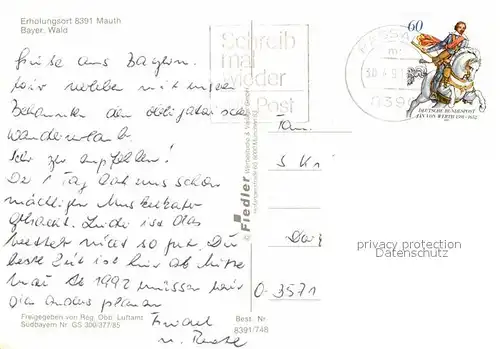 Erholungsort 8391 Mauth
Bayer. Wald
Grüße aus Bayern.
Wir machen mit unseren
Bekannten den obligatorischen
Wanderurlaub.
Sehr zu empfehlen!
Der 1 Tag hat uns schon
mächtigen Muskelkater
gebracht. Leider ist das
Wetter nicht so gut. Die
beste Zeit ist hier ab Mitte
Mai. Ab 1992 müssen wir
die anders planen
u.
Freigegeben von Reg. Obb. Luftamt
Südbayern Nr. GS 300/377/85
Best. Nr.
8391/748
© Fiedler
Schreib
mal
wieder
Post
60
DEUTSCHE BUNDESPOST
JAN VON WERTH 1591-1652
Fam.
O-3571
privacy protection
Datenschutz